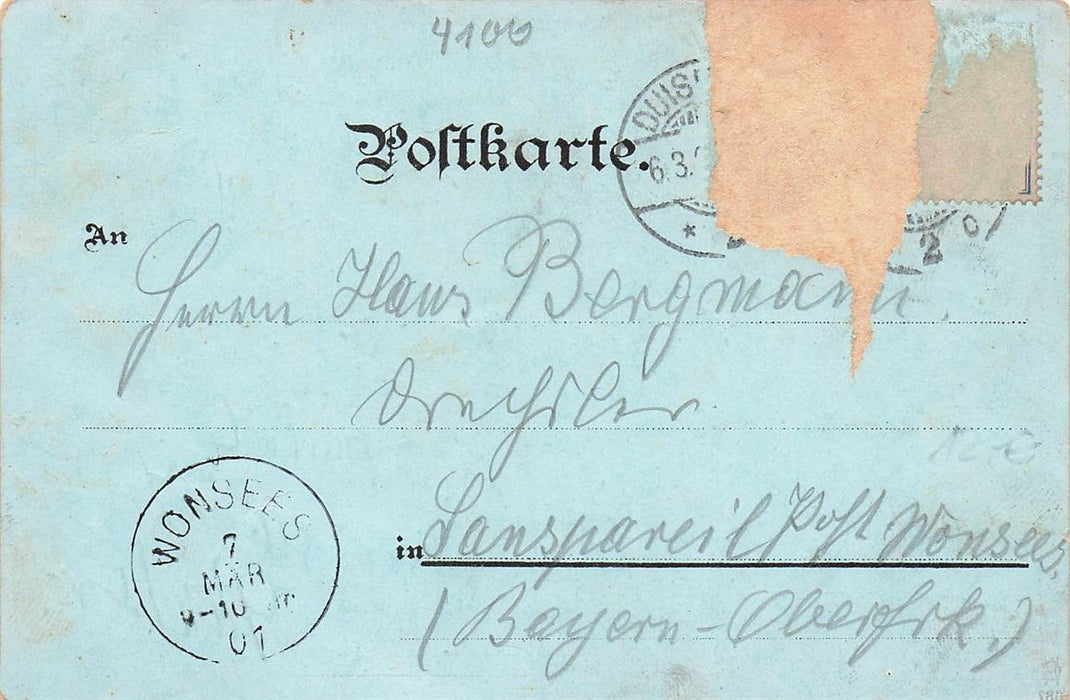 4100
Postkarte.
DUIS
6.3.
* 2
2 o
An
Herrn Hans Bergmann.
Drechsler
in Sanspareil Post Wonsees.
(Bayern-Oberfrk.)
WONSEES
7
MÄR
9-10
01